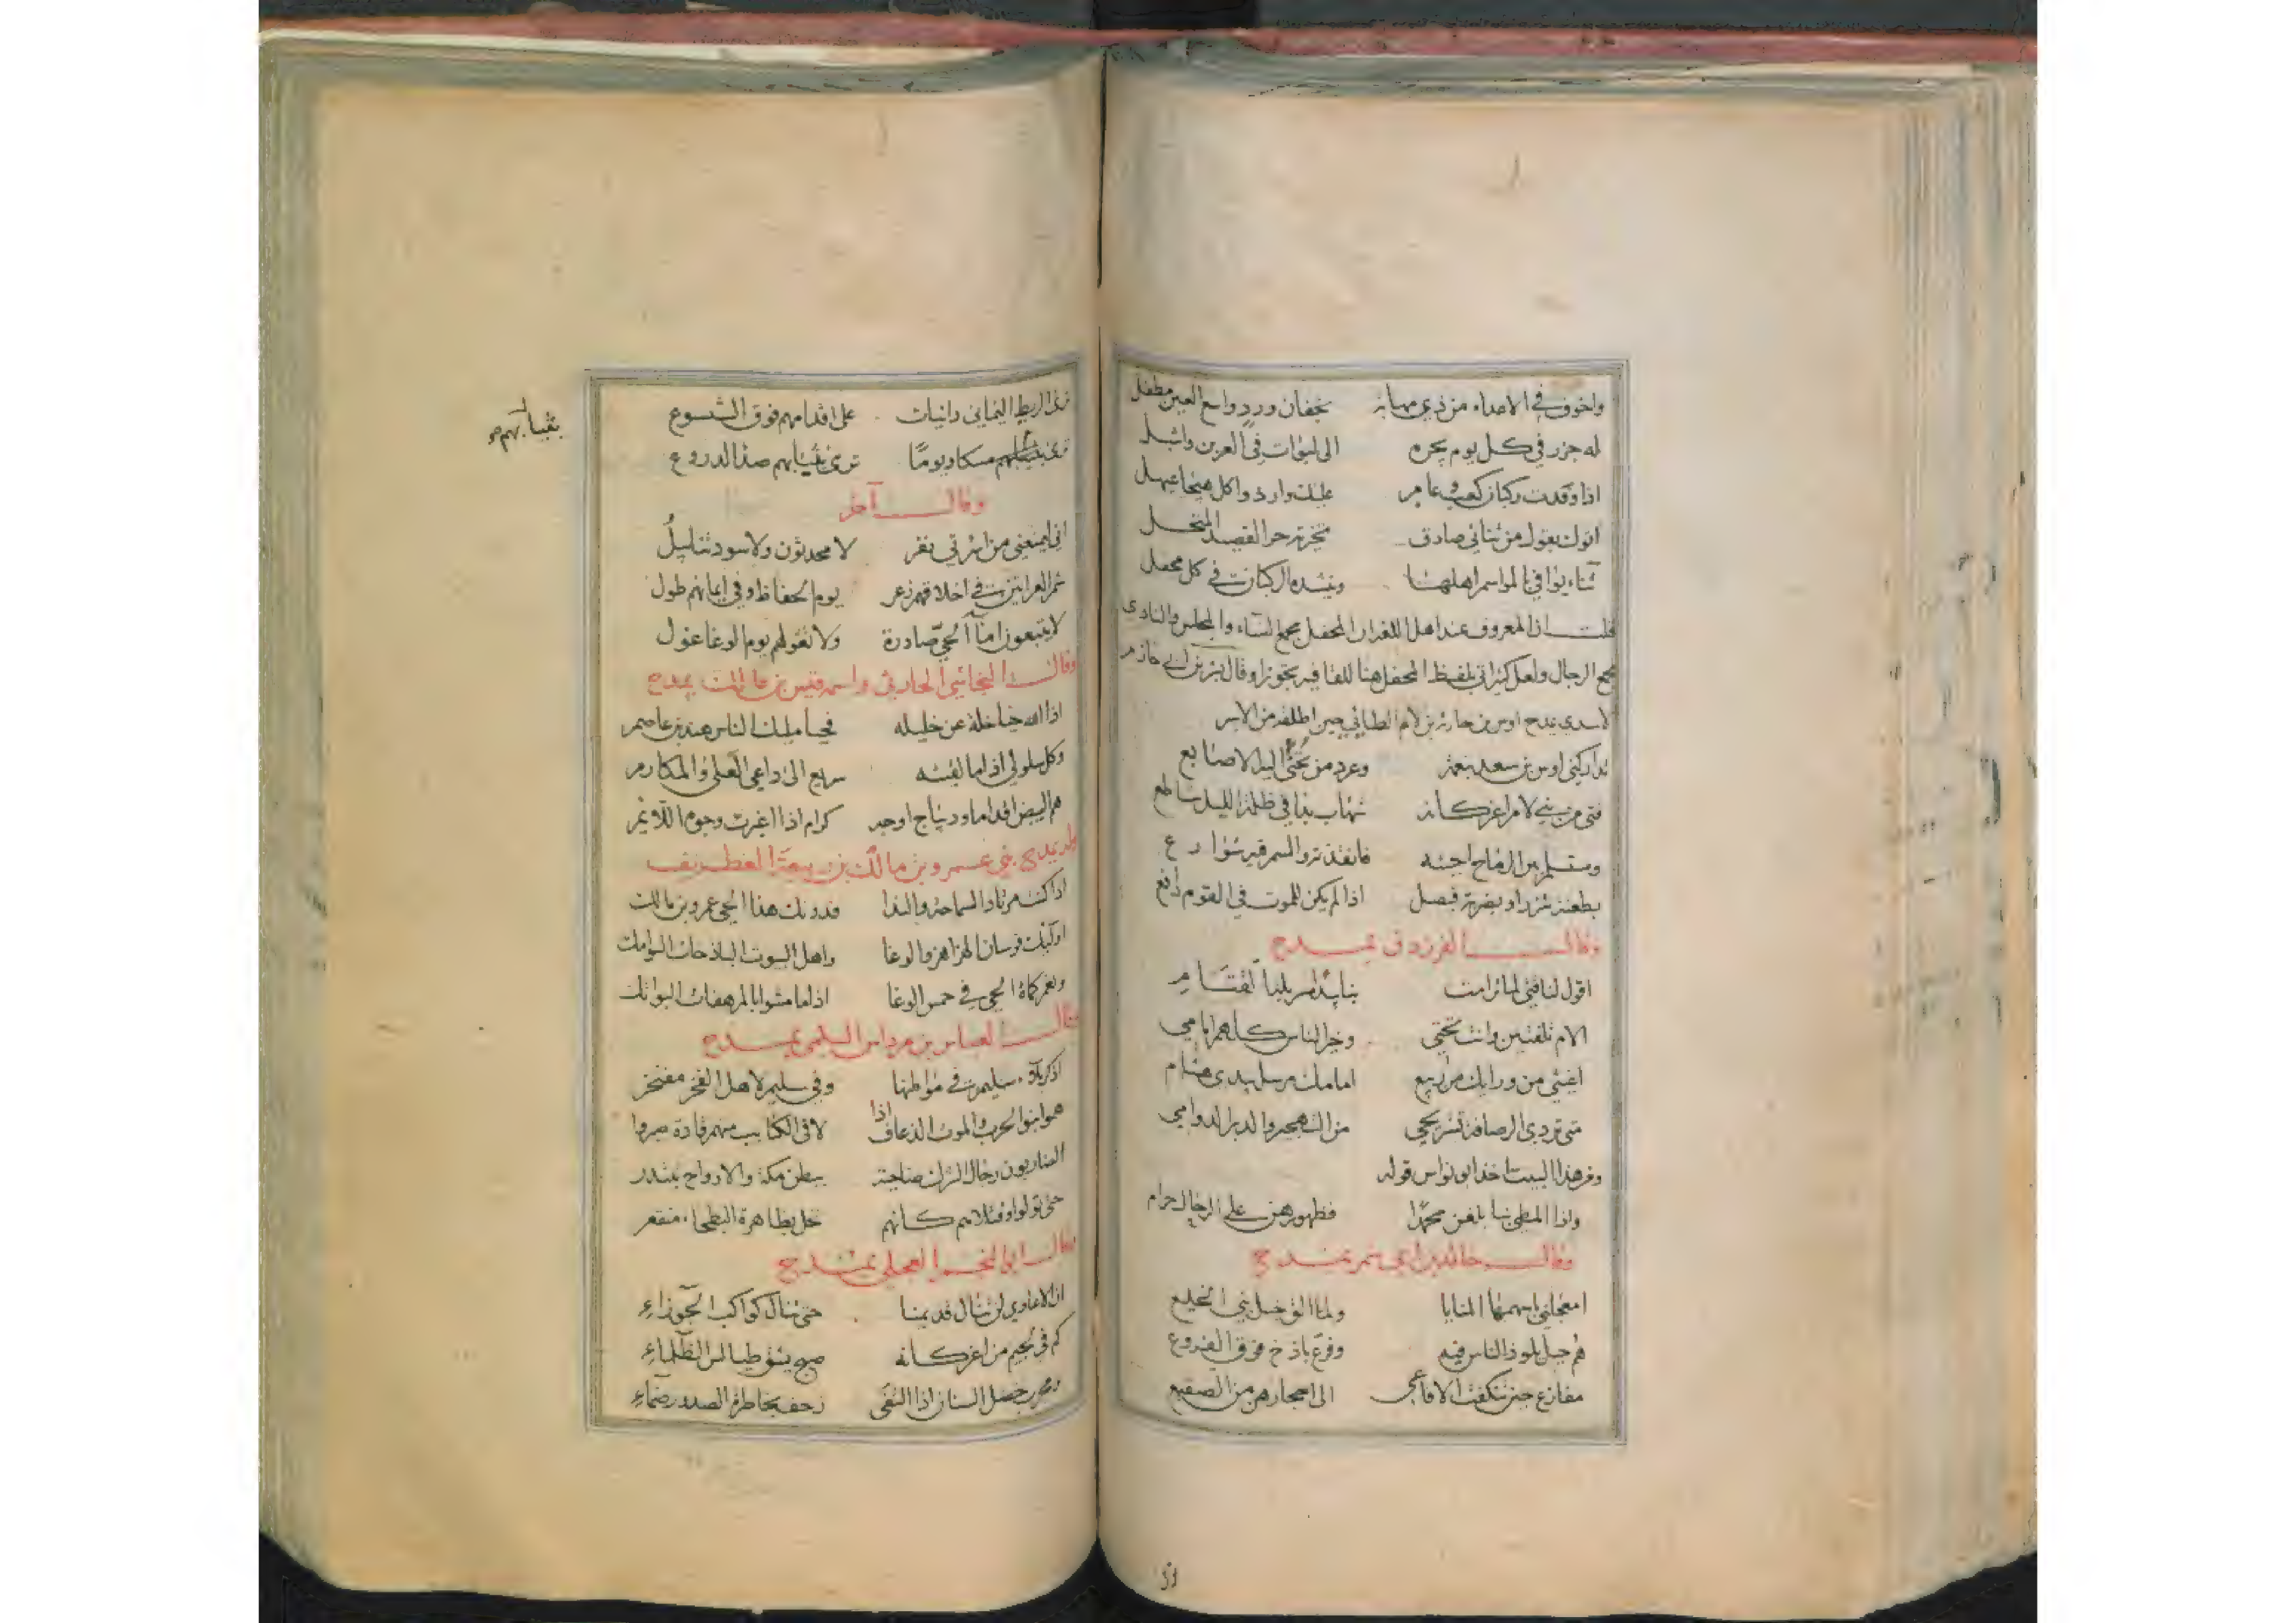 واخوف في الاعداء من ذي مهابة بخفان ورد واسع العين مطفل
له جزر في كل يوم يجره الى لبؤات في العرين واشبل
اذا وفدت ركبان كعب وعامر عليك واردوا كل هيجا عيهل
اتوك بقول من ثنائي صادق حر القصيد المنخل
ثناء يوافي بالمواسم اهلها وينشده الركبان في كل محفل
قلت ان المعروف عند اهل اللغة ان المحفل مجمع النساء والمجلس والنادي
مجمع الرجال ولعل كثيرا اتى بلفظ المحفل هنا للقافية تجوزا وقال بشر بن ابي خازم
الاسدي يمدح اوس بن حارثة بن لام الطائي حين اطلقه من الاسر
تداركني اوس بن سعد بنعمة وعرد من تحنى اليه الاصابع
فتى من بني لام اغر كانه شهاب بدا في ظلمة الليل ساطع
بطعنة شزر او بضربة فيصل اذا لم يكن للموت في القوم دافع
وقال الفرزدق يمدح
اقول لناقتي لما ترامت بنا بيد
الام تلفتين وانت تحتي وخير الناس كلهم امامي
اغيثي من ورايك من ربيع امامك مرسل بيدي هشام
متى تردي الرصافة تستريحي من التهجير والدبر الدوامي
ومن هذا البيت اخذ ابو نواس قوله
واذا المطي بنا بلغن محمدا فظهورهن على الرجال حرام
وقال خالد بن يمدح
المنايا ولما الق خيل بني الخليع
هم جبل يلوذ الناس فيه وفرع باذخ فوق الفروع
الافاعي الى اجحارهن من الصقيع
ترى الريط اليماني دانيات على اقدامهم فوق الشسوع
ترى بثيابهم مسكا ويوما ترى بثيابهم صدا الدروع
بثيابهم صح
وقال آخر
اني ليمنعني من اسرتي نفر لا محدثون ولا سود تنابيل
شم العرانين في اخلاقهم زعر يوم الحفاظ وفي ايمانهم طول
لا يتبعون الحي صادرة ولا تغولهم يوم الوغا غول
وقال النجاشي الحارثي واسمه قيس بن مالك يمدح
اذا الله حيا خلة عن خليله فحيا مليك الناس هند بن عاصم
وكل سلولي اذا ما لقيته سريع الى داعي العلى والمكارم
هم البيض اقداما وديباج اوجه كرام اذا اغبرت وجوه الالائم
وله يمدح بني عمرو بن مالك بن ربيعة الغطريف
اذا كنت مرتاد السماحة والندا فدونك هذا الحي عمرو بن مالك
اولئك فرسان الهزاهز والوغا واهل البيوت الباذخات السوامك
ونعم كماة الحي في حمس الوغا اذا ما مشوا بالمرهفات البواتك
وقال العباس بن مرداس السلمي يمدح
سليم في مواطنها وفي سليم لاهل الفخر مفتخر
هموا بنو الحرب والموت الذعاف اذا لاقى الكتايب منهم قادة صبروا
الضاربون رجال الشرك ضاحية ببطن مكة والارواح تبتدر
حتى تولوا وقتلاهم كانهم نخل بظاهرة البطحاء منقعر
وقال ابو النجم العجلي يمدح
ان الاعادي لن تنال قديمنا حتى تنال كواكب الجوزاء
كم في لجيم من اغر كانه صبح يشق طيالس الظلماء
ومجرب خضل السنان اذا التقى زحف بخاطرة الصدور ظماء